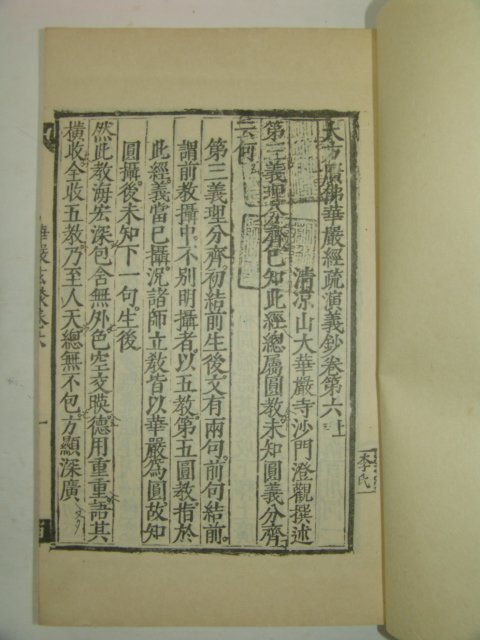 大方廣佛華嚴經疏演義鈔卷第六上
清涼山大華嚴寺沙門澄觀撰述
第三義理分齊已知此經總屬圓教未知圓義分齊
云何
第三義理分齊初結前生後文有兩句前句結前
謂前教攝中不別明攝者以五教第五圓教指於
此經義當已攝況諸師立教皆以華嚴為圓故知
圓攝後未知下一句生後
然此教海宏深包含無外色空交暎德用重重語其
橫收全收五教乃至人天總無不包方顯深廣
李氏